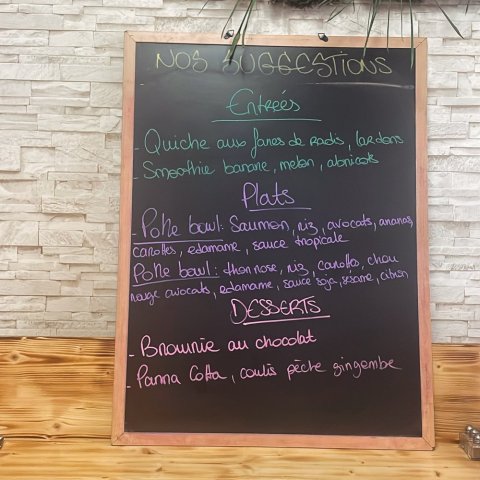 NOS SUGGESTIONS
Entrées
- Quiche aux fanes de radis, lardons
- Smoothie banane, melon, abricots
Plats
- Poke bowl: Saumon, riz, avocats, ananas,
carottes, edamame, sauce tropicale
Poke bowl: thon rose, riz, carottes, chou
rouge avocats, edamame, sauce soja, sésame, citron
DESSERTS
- Brownie au chocolat
- Panna Cotta, coulis pêche gingembe